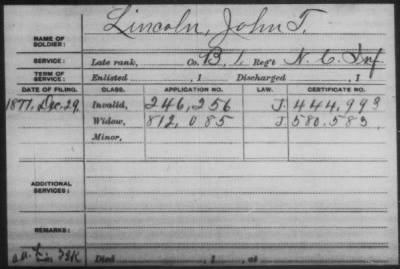 NAME OF SOLDIER: Lincoln, John T.
SERVICE: Late rank, Co. B, 1, Reg't N. C. Inf.
TERM OF SERVICE: Enlisted , 1 Discharged , 1
DATE OF FILING. CLASS. APPLICATION NO. LAW. CERTIFICATE NO.
1877, Dec. 29, Invalid, 246,256 J. 444,993
Widow, 812,085 J. 580.583
Minor,
ADDITIONAL SERVICES:
REMARKS:
Died , 1 , at